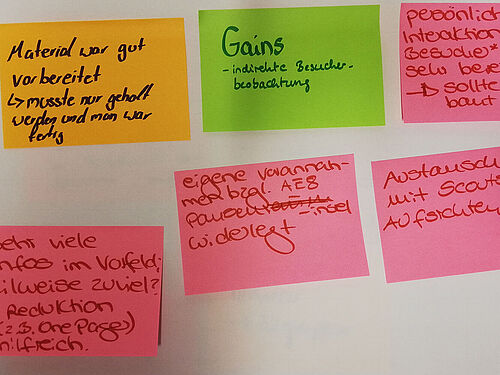 Material war gut
vorbereitet
↳ musste nur geholt
werden und man war
fertig
Gains
- indirekte Besucher-
beobachtung
persönlich
Interaktion
Besucher
sehr
→ sollte
baut
eigene Vorannah-
men bzgl. AEB
Pausen
-insel
widerlegt
Austausch
mit Scouts
Aufsichten
sehr viele
nfos im Vorfeld;
eilweise zuviel?
Reduktion
(z.B. One Page)
hilfreich.